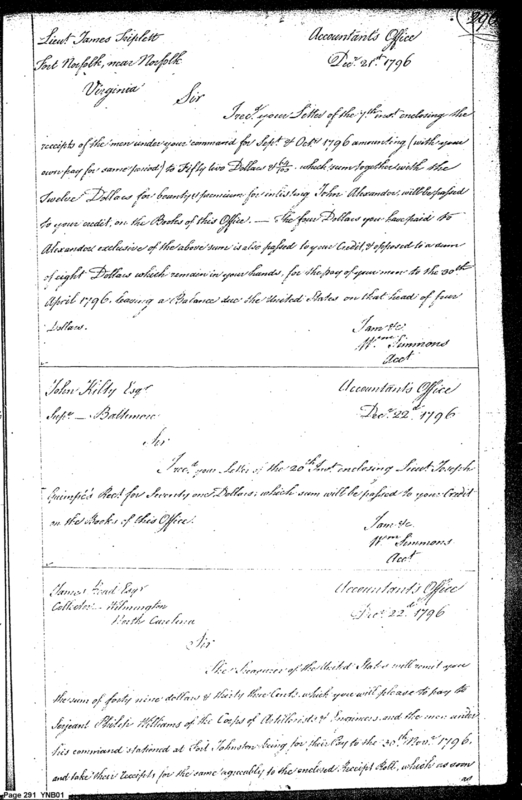 290
Lieut. James Triplett Accountant's Office
Fort Norfolk, near Norfolk Decr. 21st 1796
Virginia
Sir
I recd. your Letter of the 7th inst. enclosing the
receipts of the men under your command for Sept. & Octr. 1796 amounting (with your
own pay for same period) to Fifty two Dollars & 64/100 which sum together with the
Twelve Dollars for bounty & premium for inlisting John Alexander, will be passed
to your credit, on the Books of this Office. — The four Dollars you have paid to
Alexander exclusive of the above sum is also passed to your Credit, & opposed to a sum
of eight Dollars which remain in your hands, for the pay of your men to the 30th
April 1796. leaving a Balance due the United States on that head of four
Dollars.
I am &c.
Wm. Simmons
Acct.
John Kilty Esqr. Accountant's Office
Supr. — Baltimore Decr. 22d. 1796
Sir
I recd. your Letter of the 20th Inst. enclosing Lieut. Joseph
Recd. for Seventy one Dollars; which sum will be passed to your Credit
on the Books of this Office.
I am &c.
Wm Simmons
Acct.
James Read Esqr. Accountant's Office
Collector — Wilmington Decr. 22d. 1796
North Carolina
Sir
The Treasurer of the United States will remit you
the sum of forty nine dollars & thirty three Cents, which you will please to pay the
Serjeant Philip Williams of the Corps of Artillerists & Engineers, and the men under
his command stationed at Fort Johnston being for their Pay to the 30th Novr. 1796.
and take their receipts for the same agreeably to the enclosed Receipt Roll, which as soon
as
Page 291 YNB01